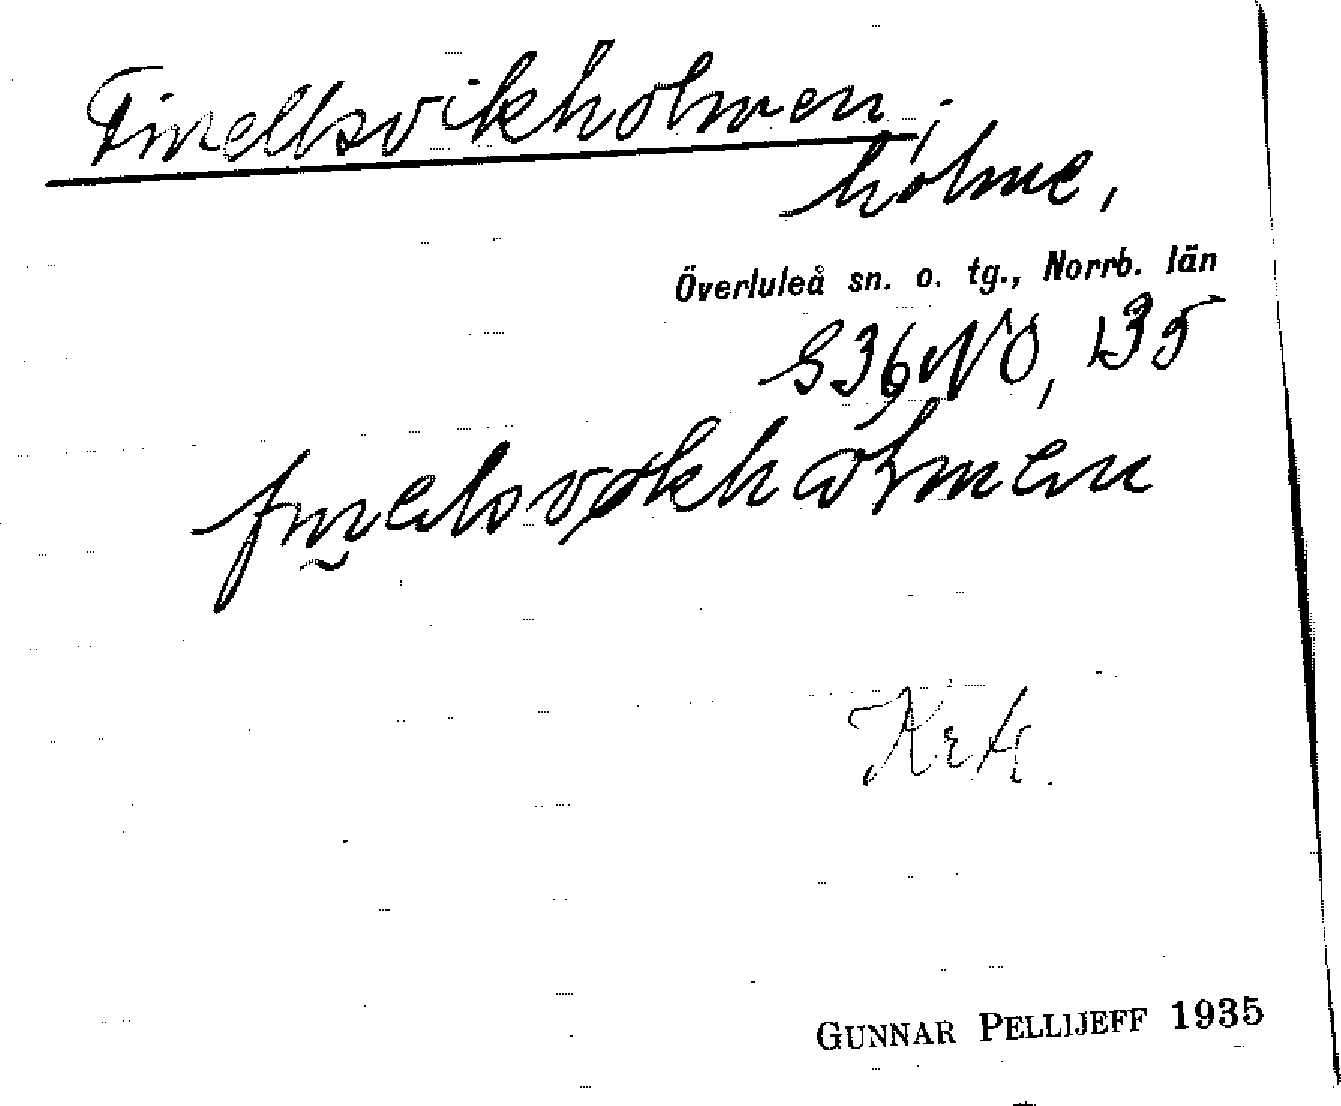 Finellsvikholmen,
holme,
Överluleå sn. o. tg., Norrb. län
S36NO, 135
KrA.
GUNNAR PELLIJEFF 1935